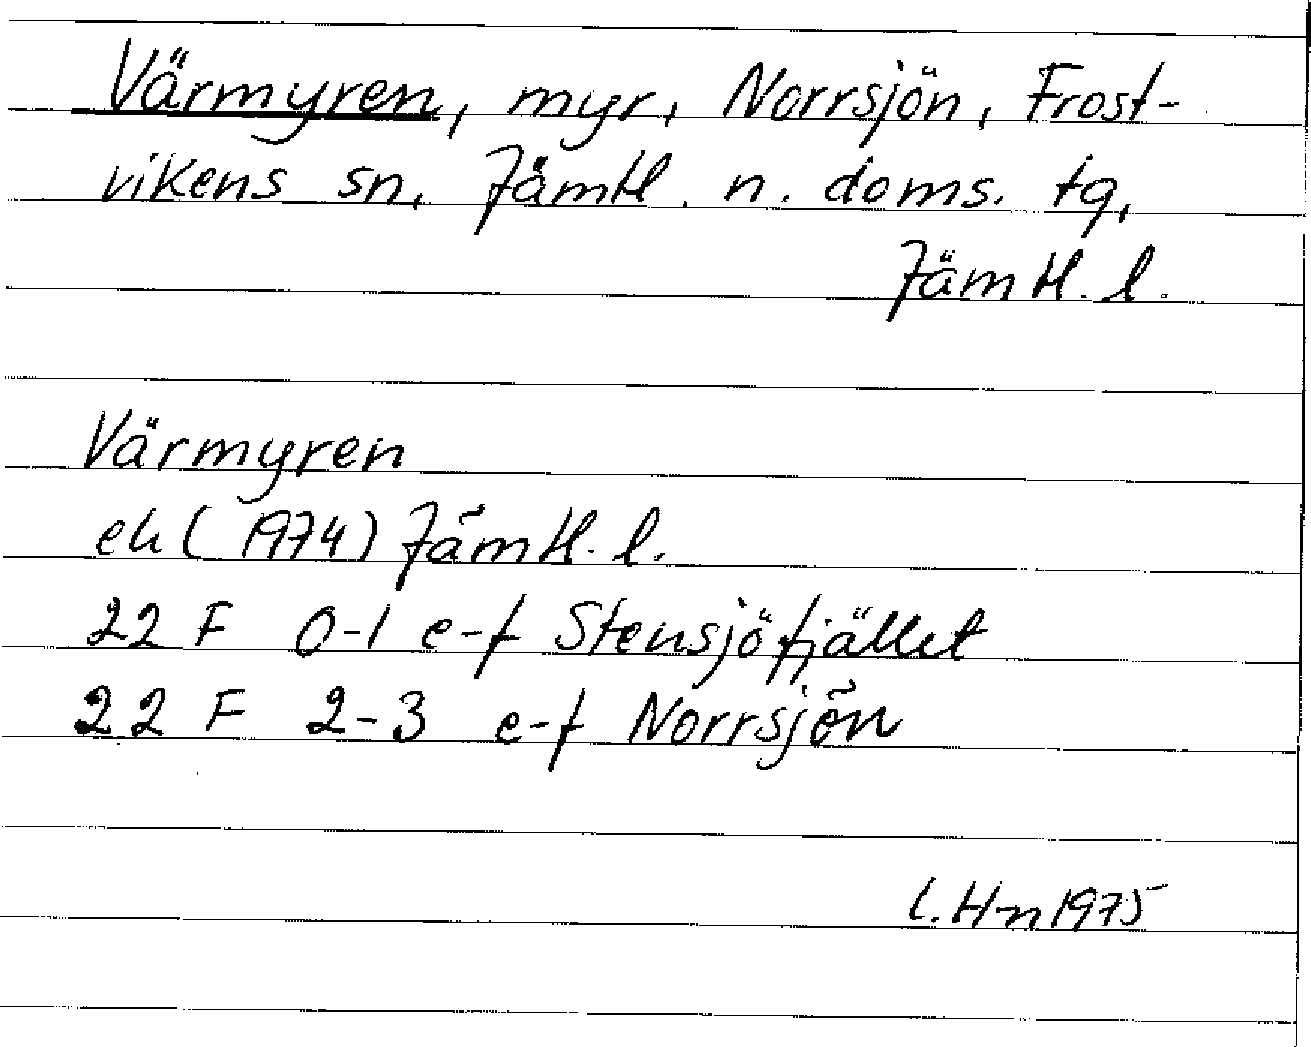 Värmyren, myr, Norrsjön, Frost-
vikens sn, Jämtl. n. doms. tg,
Jämtl. l.
Värmyren
ek (1974) Jämtl. l.
22 F 0-1 e-f Stensjöfjället
22 F 2-3 e-f Norrsjön
C. Hn 1975